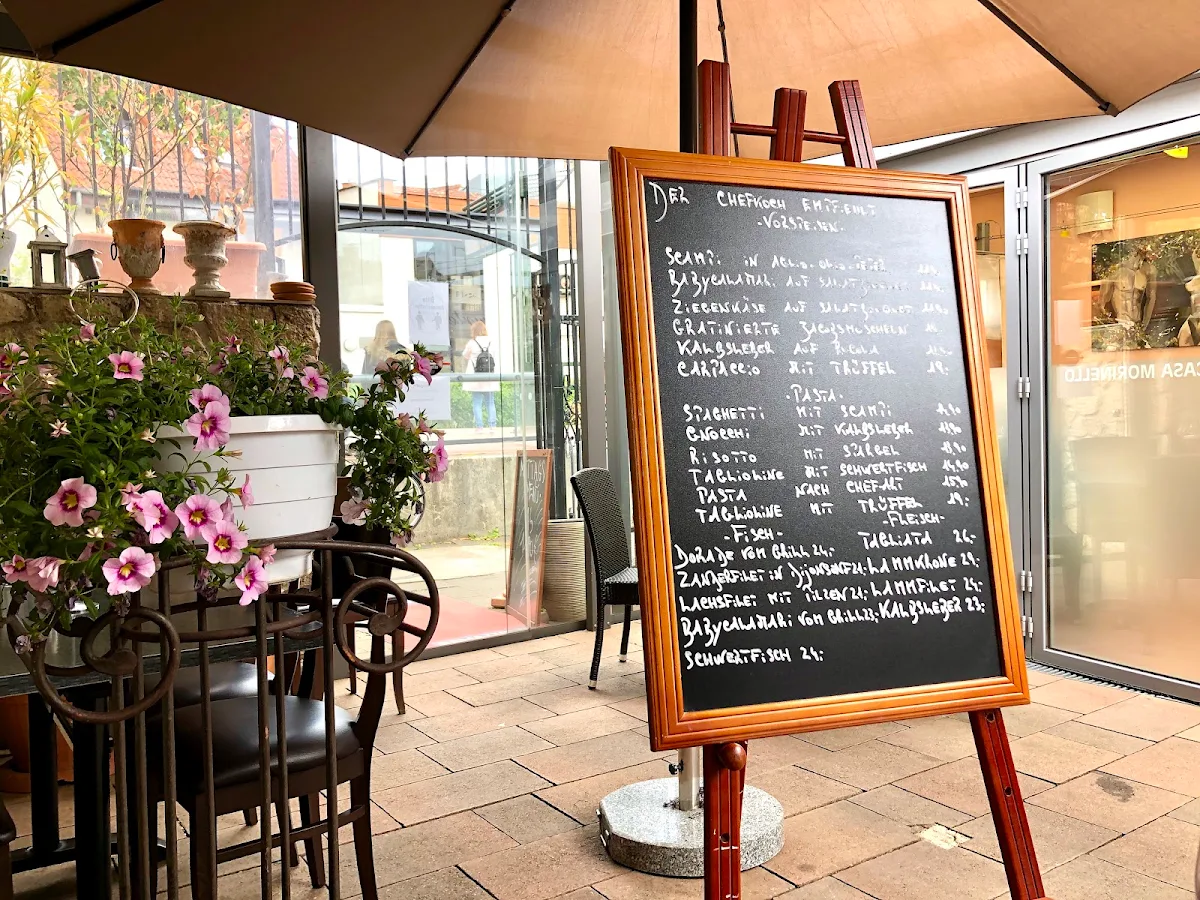 DER CHEFKOCH EMPFIEHLT
-VORSPEISEN-
SCAMPI IN AGLIO, OLIO
BABYCALAMARI AUF SALAT
ZIEGENKÄSE AUF SALAT
GRATINIERTE JACOBSMUSCHELN
KALBSLEBER AUF RUCOLA
CARPACCIO MIT TRÜFFEL
-PASTA-
SPAGHETTI MIT SCAMPI
GNOCCHI MIT KALBSLEBER
RISOTTO MIT SPARGEL
TAGLIOLINE MIT SCHWERTFISCH
PASTA NACH CHEFART
TAGLIOLINE MIT TRÜFFEL 19,-
-FISCH- -FLEISCH-
DORADE VOM GRILL 24,- TAGLIATA 26,-
ZANDERFILET IN DIJONSENF 24,- LAMMKRONE 29,-
LACHSFILET MIT PILZEN 21,- LAMMFILET 24,-
BABYCALAMARI VOM GRILL 23,- KALBSLEBER 23,-
SCHWERTFISCH 24,-
CASA MORINELLO